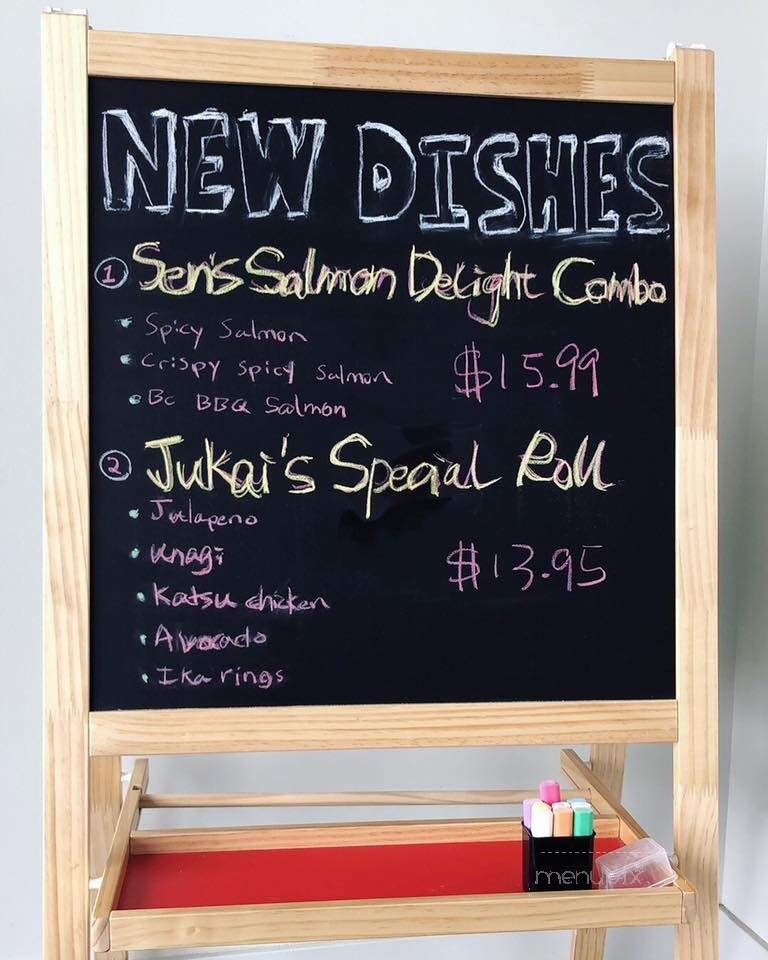 NEW DISHES
1 Sen's Salmon Delight Combo
• Spicy Salmon
• Crispy spicy salmon
• BC BBQ Salmon
$15.99
2 Jukai's Special Roll
• Jalapeno
• unagi
• Katsu chicken
• Avocado
• Ika rings
$13.95
menupix